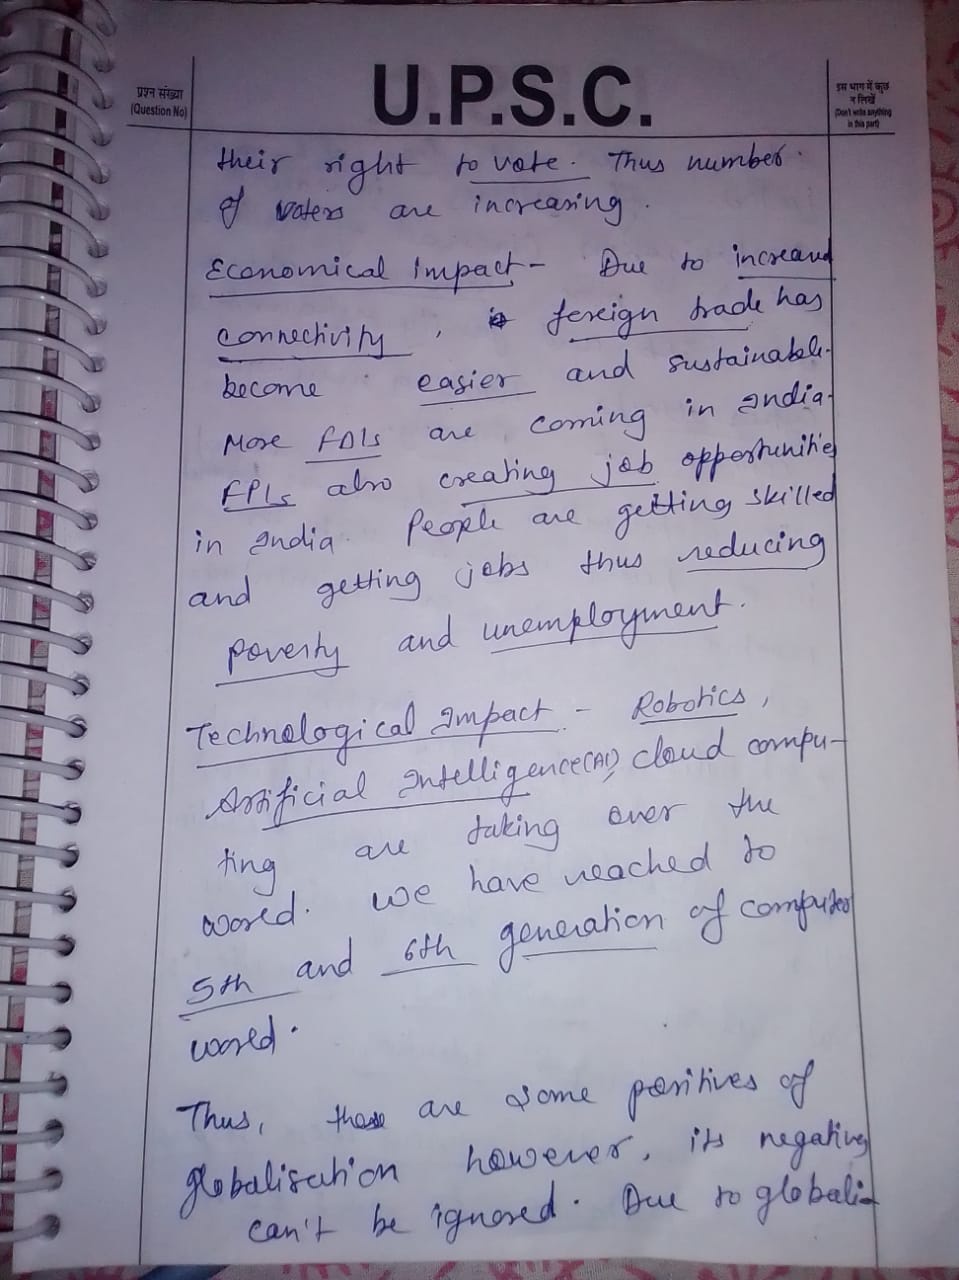 प्रश्न संख्या
(Question No)
U.P.S.C.
इस भाग में कुछ
न लिखें
(Don't write anything
in this part)
their right to vote. Thus number
of voters are increasing.
Economical impact - Due to increased
connectivity, foreign trade has
become easier and sustainable.
More FDIs are coming in India.
FPIs also creating job opportunities
in India. People are getting skilled
and getting jobs thus reducing
poverty and unemployment.
Technological Impact - Robotics,
Artificial Intelligence(AI), cloud compu-
ting are taking over the
world. We have reached to
5th and 6th generation of computer
world.
Thus, these are some positives of
globalisation however, its negatives
can't be ignored. Due to globali-